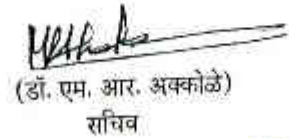 (डॉ. एम. आर. अक्कोळे)
सचिव